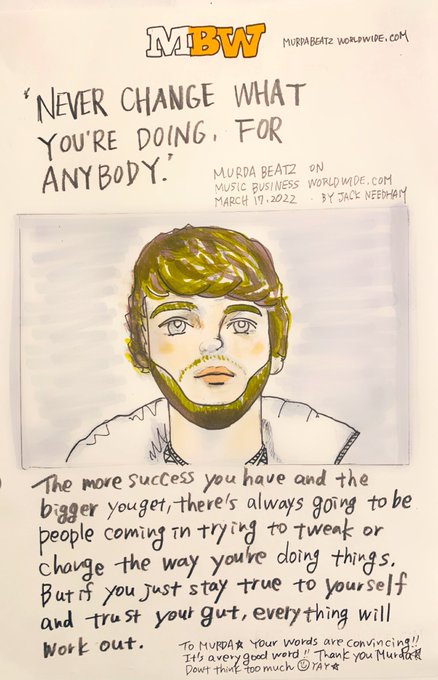 MBW
MURDABEATZ WORLDWIDE.COM
'NEVER CHANGE WHAT
YOU'RE DOING, FOR
ANYBODY.'
MURDA BEATZ ON
MUSIC BUSINESS WORLDWIDE.COM
MARCH 17.2022 . BY JACK NEEDHAM
The more success you have and the
bigger you get, there's always going to be
people coming in trying to tweak or
change the way you're doing things.
But if you just stay true to yourself
and trust your gut, everything will
work out.
To MURDA☆ Your words are convincing!!
It's a very good word!! Thank you Murda☆
Don't think too much ☺ YAY☆